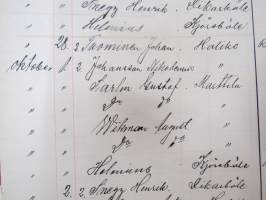 " " Snegg Henrik. Likarböle
" " Helenius Kjörsböle
" 28 2 Tuominen Johan. Halikko
Oktober 1 2 Johansson Nikodemus "
" " Sarlin Gustaf. Marttila
" " Do Do
" " Wikman August "
" " Do Do
" " Helenius Kjörsböle
" 2. 2 Snegg Henrik. Likarböle